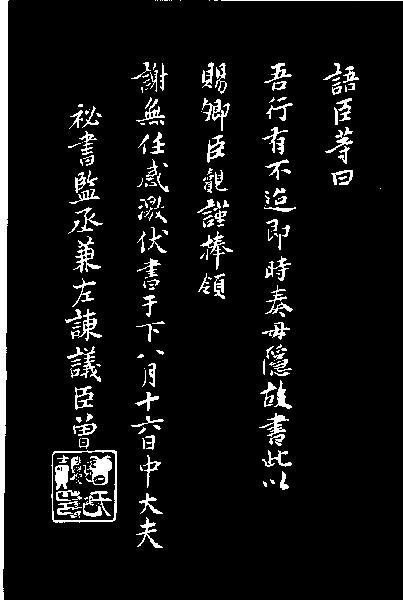 語臣等曰
吾行有不迨即時奏毋隱故書此以
賜卿臣覿謹捧領
謝無任感激伏書于下八月十六日中大夫
祕書監丞兼左諫議臣曾
曾氏